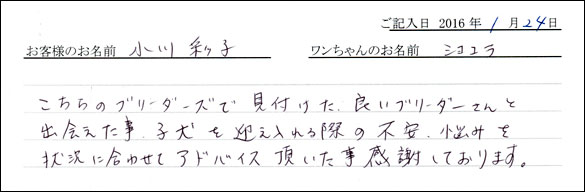 ご記入日 2016 年 1 月 24 日
お客様のお名前 小川 彩子 ワンちゃんのお名前 ショコラ
こちらのブリーダーズで見付けた、良いブリーダーさんと
出会えた事、子犬を迎え入れる際の不安、悩みを
状況に合わせてアドバイス頂いた事感謝しております。